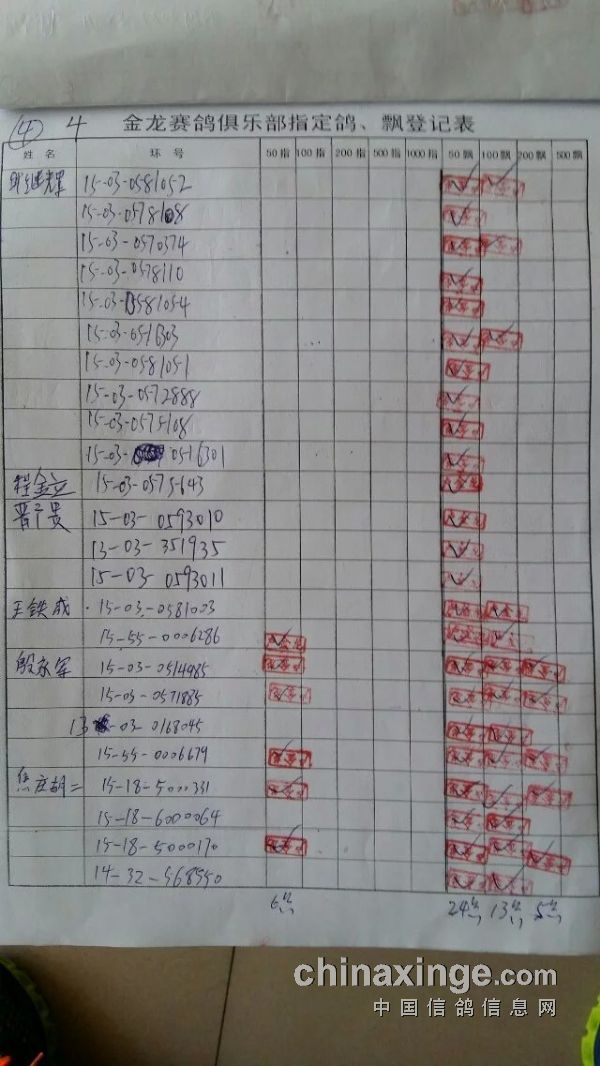 ④ 4 金龙赛鸽俱乐部指定鸽、飘登记表
姓名 环号 50指 100指 200指 500指 1000指 50飘 100飘 200飘 500飘
15-03-0581052
15-03-0578108
15-03-0570374
15-03-0578110
15-03-0581054
15-03-0516303
15-03-0581051
15-03-0572888
15-03-0575108
15-03-0516301
程金立 15-03-0575643
晋子贵 15-03-0593010
13-03-351935
15-03-0593011
王铁成 15-03-0581003
15-55-0006286
殷永军 15-03-0514985
15-03-0571885
13-03-0168045
15-55-0006679
焦庄胡二 15-18-5000331
15-18-6000064
15-18-5000170
14-32-568550
6 24 13 5
chinaxinge.com
中国信鸽信息网